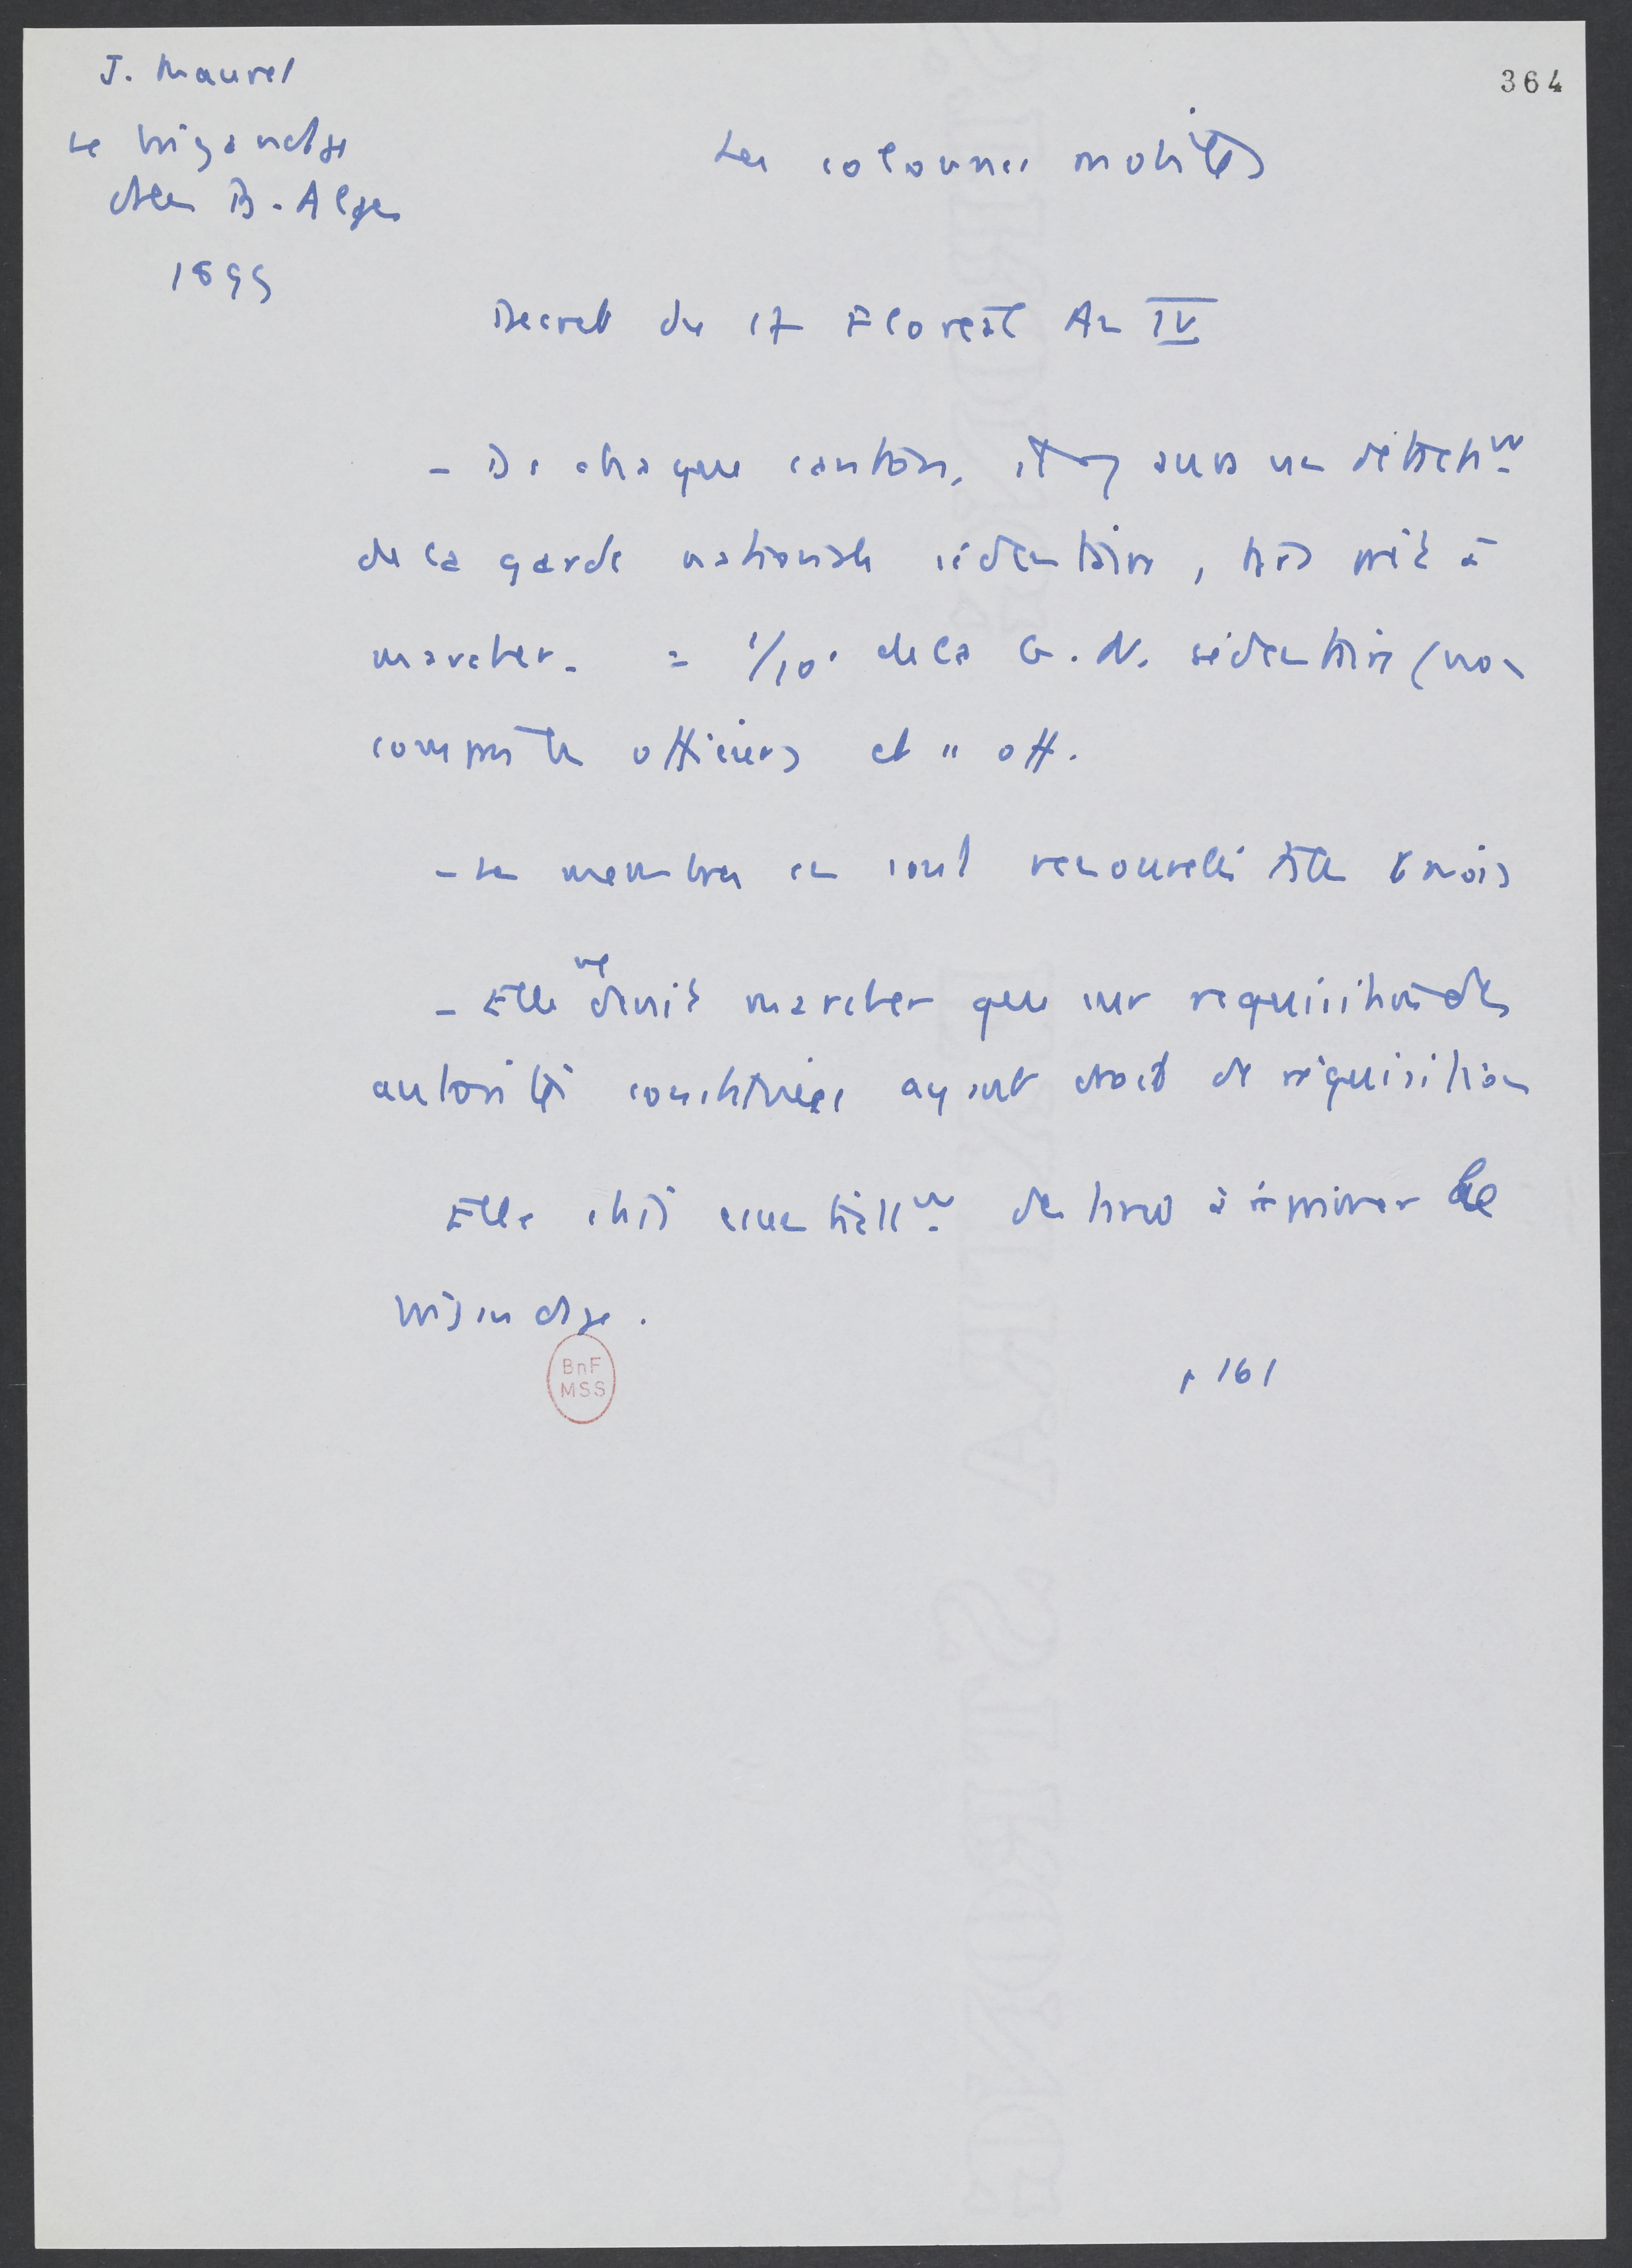 J. Maurel
364
Le brigandage
dans B. Alpes
1899
Les colonnes mobiles
Decret du 17 Floréal An IV
- De chaque canton, il y aura un détachmt
de la garde nationale sédentaire, tjrs prêt à
marcher. = 1/10e de la G. N. sédentaire (non
compris les officiers et " off.
- Les membres en sont renouvelés ts les 6 mois
- Elle ne devait marcher que sur réquisition des
autorités constituées ayant droit de réquisition
Elle était essentiellmt destinée à réprimer le
brigandage.
BnF
MSS
p 161
EXTRA STRONG